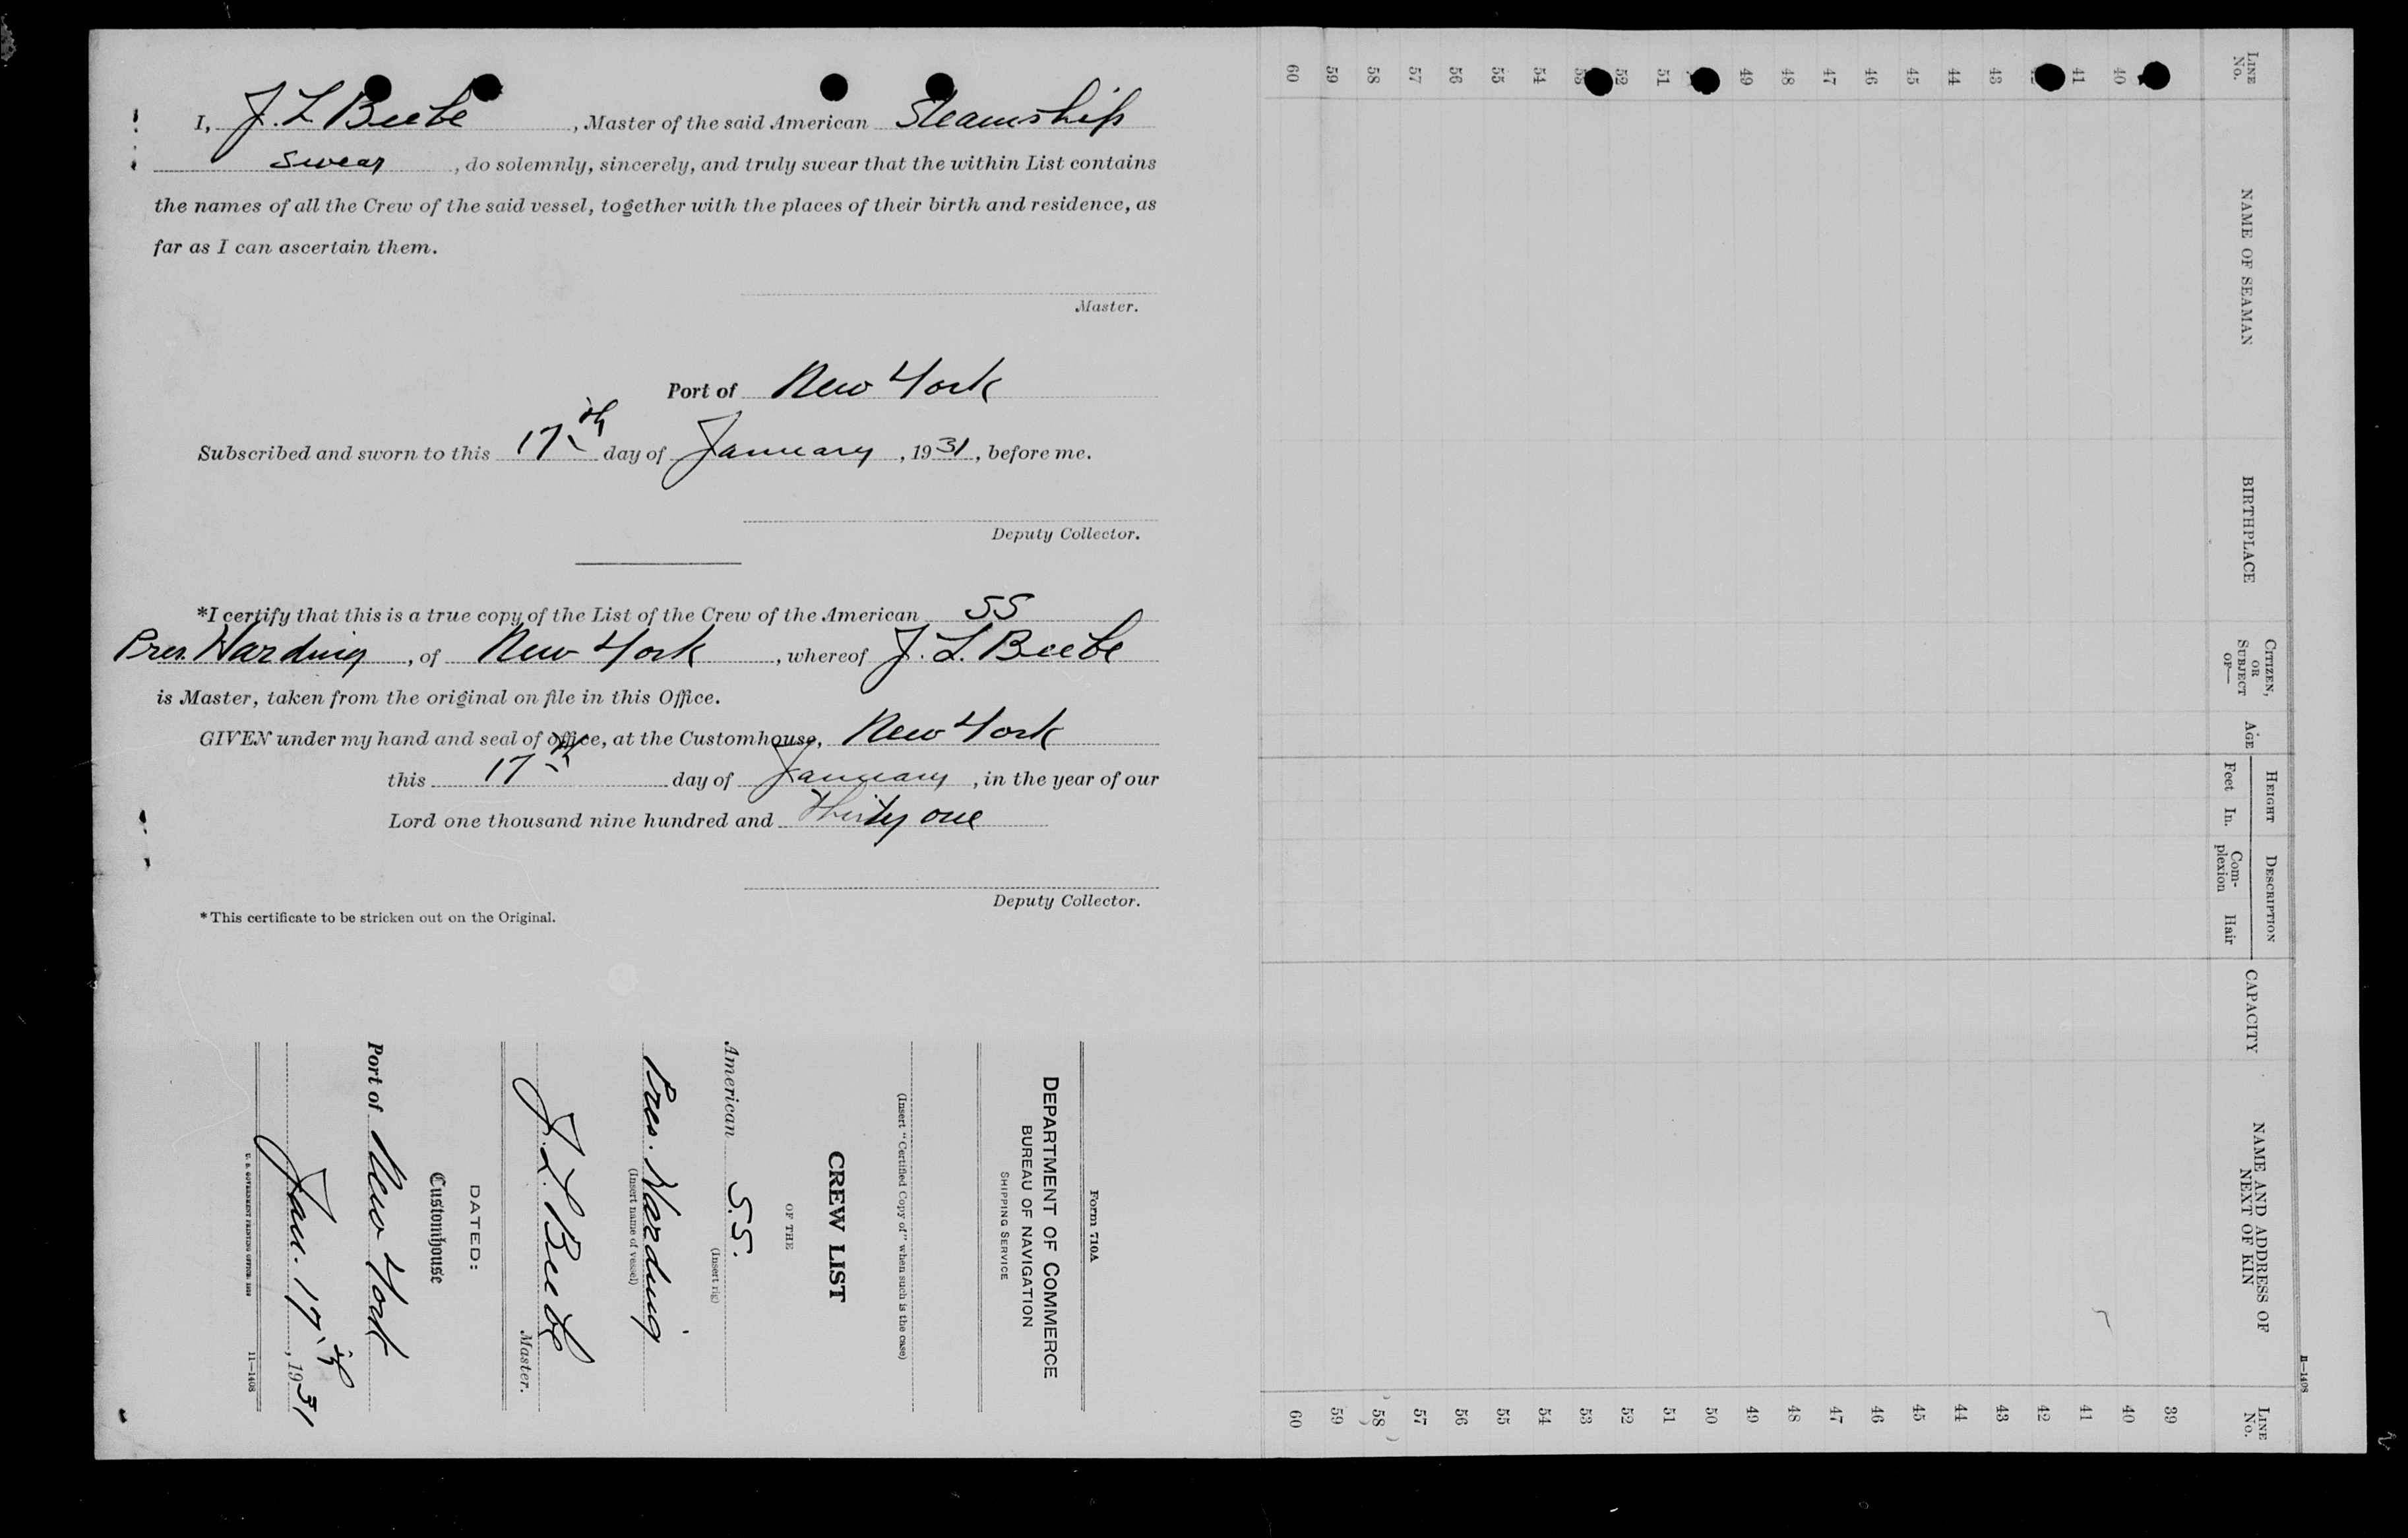 I, J. L Beebe, Master of the said American Steamship
swear, do solemnly, sincerely, and truly swear that the within List contains
the names of all the Crew of the said vessel, together with the places of their birth and residence, as
far as I can ascertain them.
Master.
Port of New York
Subscribed and sworn to this 17th day of January, 1931, before me.
Deputy Collector.
*I certify that this is a true copy of the List of the Crew of the American SS
Pres. Harding, of New York, whereof J. L. Beebe
is Master, taken from the original on file in this Office.
GIVEN under my hand and seal of office, at the Customhouse, New York
this 17th day of January, in the year of our
Lord one thousand nine hundred and thirty one
Deputy Collector.
*This certificate to be stricken out on the Original.
Form 710A
DEPARTMENT OF COMMERCE
BUREAU OF NAVIGATION
SHIPPING SERVICE
(Insert "Certified Copy of" when such is the case)
CREW LIST
OF THE
American S.S.
(Insert rig)
Pres. Harding
(Insert name of vessel)
J. L. Beebe
Master.
DATED:
Customhouse
Port of New York
Jan. 17th, 1931
U. S. GOVERNMENT PRINTING OFFICE
11—1408
LINE No.
NAME OF SEAMAN
BIRTHPLACE
CITIZEN, OR SUBJECT OF—
AGE
HEIGHT
Feet In.
DESCRIPTION
Com-plexion Hair
CAPACITY
NAME AND ADDRESS OF NEXT OF KIN
LINE No.
11—1408
40 40
41 41
42
43 43
44 44
45 45
46 46
47 47
48 48
49 49
50
51 51
52 52
53 53
54 54
55 55
56 56
57 57
58 58
59 59
60 60
39